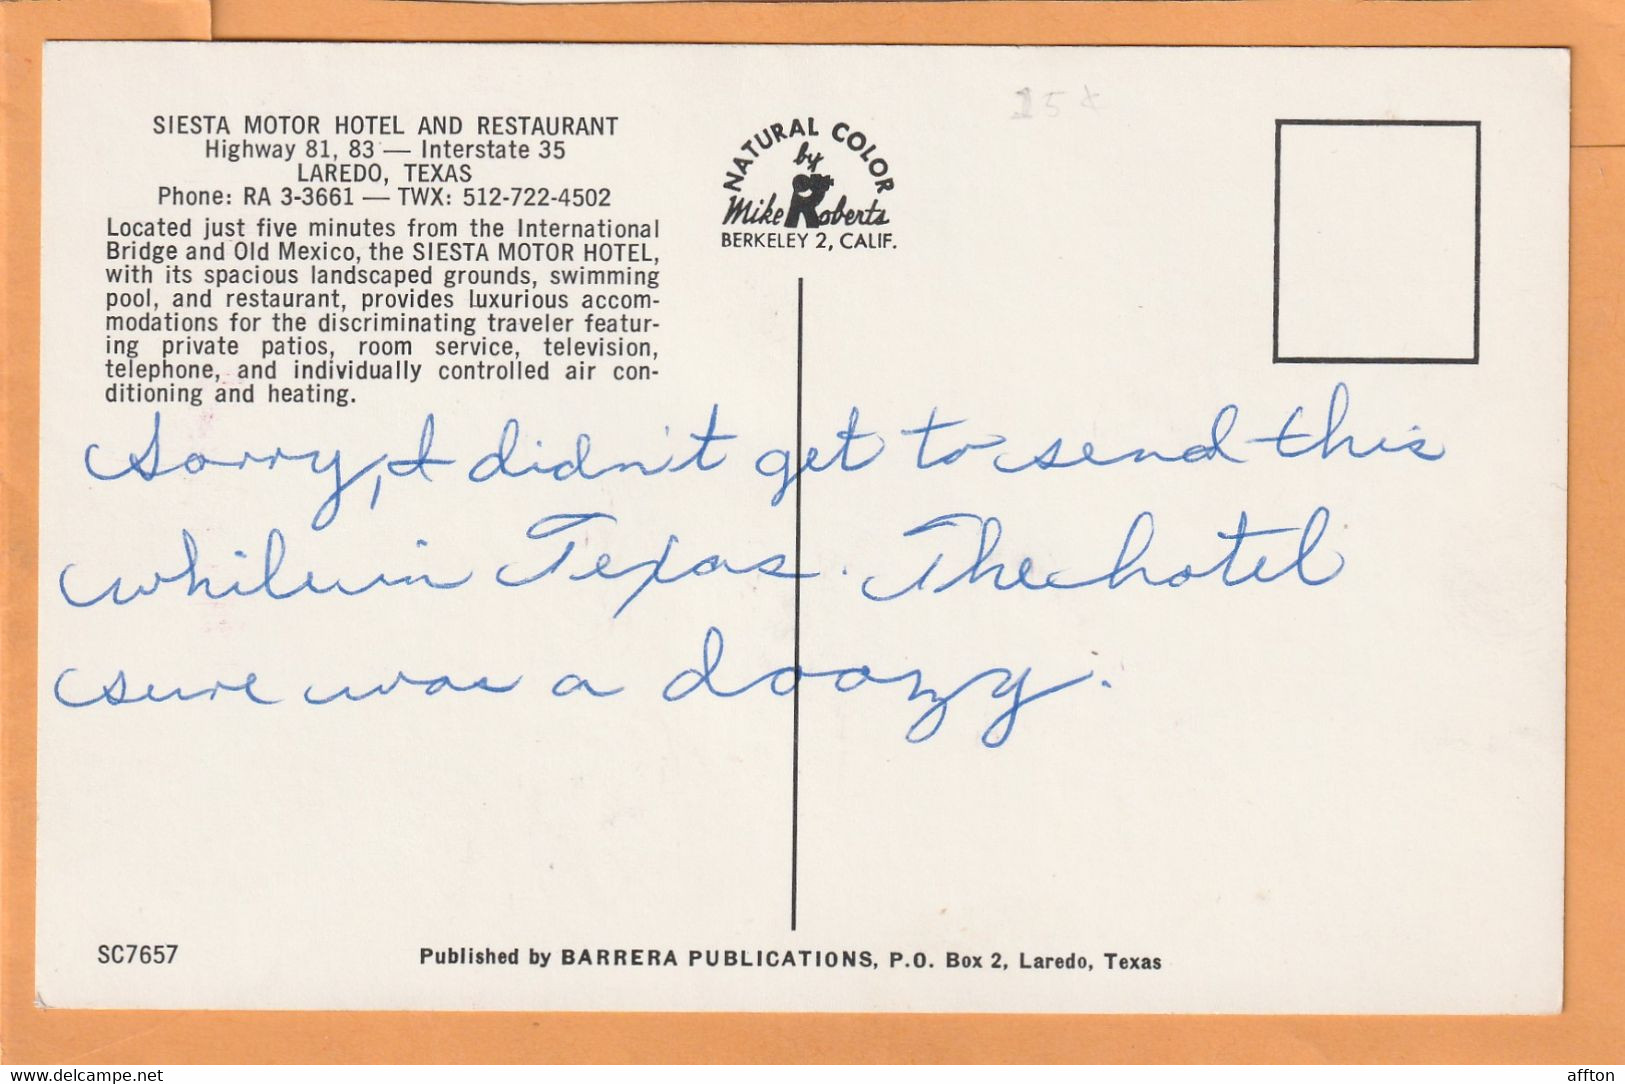 SIESTA MOTOR HOTEL AND RESTAURANT
Highway 81, 83 — Interstate 35
LAREDO, TEXAS
Phone: RA 3-3661 — TWX: 512-722-4502
Located just five minutes from the International
Bridge and Old Mexico, the SIESTA MOTOR HOTEL,
with its spacious landscaped grounds, swimming
pool, and restaurant, provides luxurious accom-
modations for the discriminating traveler featur-
ing private patios, room service, television,
telephone, and individually controlled air con-
ditioning and heating.
NATURAL COLOR
by
Mike Roberts
BERKELEY 2, CALIF.
15¢
Sorry, I didn't get to send this
while in Texas. The hotel
sure was a doozy.
SC7657
Published by BARRERA PUBLICATIONS, P.O. Box 2, Laredo, Texas
www.delcampe.net
affton